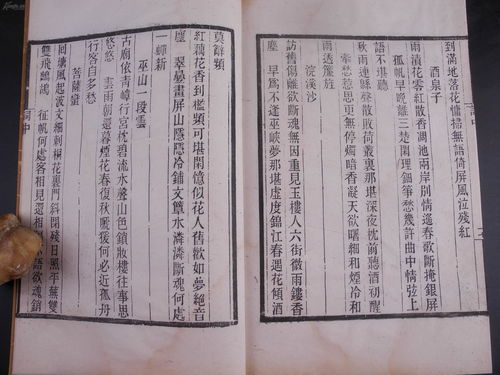 到滿地落花慵掃無語倚屏風泣殘紅
酒泉子
雨漬花零紅散香凋池兩岸別情遙春歌斷掩銀屏
孤帆早晚離三楚閒理鈿箏愁幾許曲中情弦上
語不堪聽
秋雨連緜聲散敗荷叢裏那堪深夜枕前聽酒初醒
牽愁惹思更無停燭暗香凝天欲曙細和煙冷和
雨透簾旌
浣溪沙
訪舊傷離欲斷魂無因重見玉樓人六街微雨鏤香
塵 早爲不逢巫峽夢那堪虛度錦江春遇花傾酒
莫辭頻
紅藕花香到檻頻可堪閒憶似花人舊歡如夢絕音
塵 翠疊畫屏山隱隱冷鋪文簟水潾潾斷魂何處
一蟬新
巫山一段雲
古廟依青嶂行宮枕碧流水聲山色鎖妝樓往事思
悠悠 雲雨朝還暮煙花春復秋啼猨何必近孤舟
行客自多愁
菩薩蠻
回塘風起波文細刺桐花裏門斜閉殘日照平蕪雙
雙飛鷓鴣 征帆何處客相見還相隔不語欲魂銷